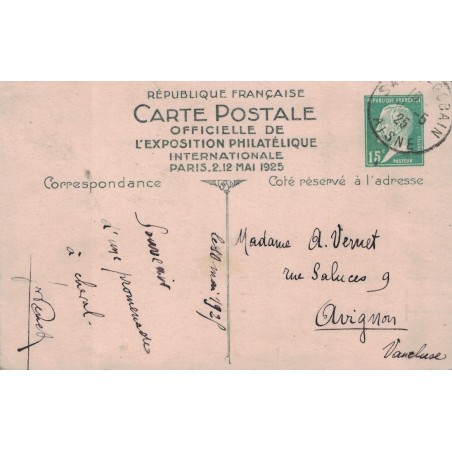 RÉPUBLIQUE FRANÇAISE
CARTE POSTALE
OFFICIELLE DE
L'EXPOSITION PHILATÉLIQUE
INTERNATIONALE
PARIS.2.12 MAI 1925
Correspondance
Coté réservé à l'adresse
REPUBLIQUE FRANÇAISE
15
PASTEUR
GOBAIN
25
AISNE
mai 1925
Souvenir
d'une promenade
à cheval
Madame A. Vernet
rue Saluces 9
Avignon
Vaucluse